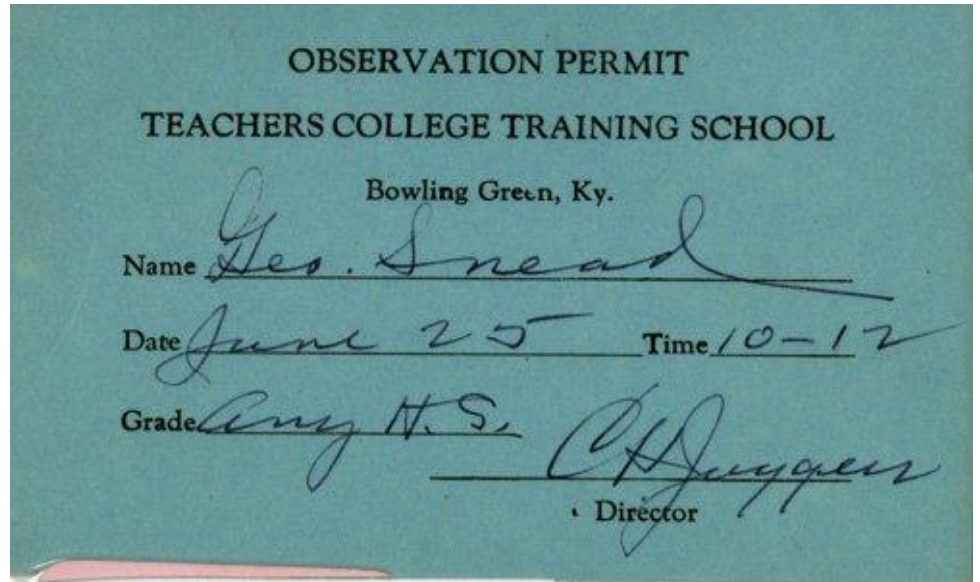 OBSERVATION PERMIT
TEACHERS COLLEGE TRAINING SCHOOL
Bowling Green, Ky.
Name Geo. Snead
Date June 25 Time 10-12
Grade Any H. S.
C H Jaggers
Director